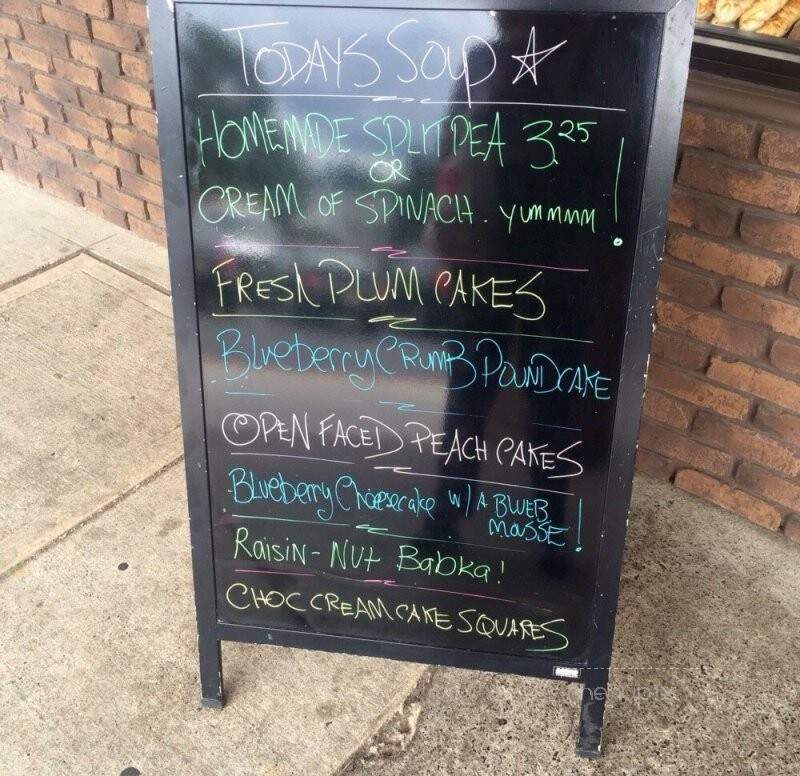 TODAYS SOUP
HOMEMADE SPLIT PEA 3.25
OR
CREAM OF SPINACH. YUMMMM!
FRESH PLUM CAKES
Blueberry CRUMB POUNDCAKE
OPEN FACED PEACH CAKES
Blueberry Cheesecake w/ A BLUEB
MOSSE!
Raisin-Nut Babka!
CHOC CREAM CAKE SQUARES